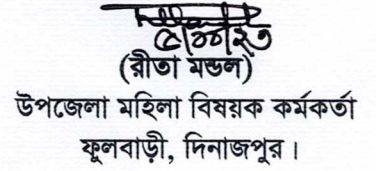 (রীতা মন্ডল)
উপজেলা মহিলা বিষয়ক কর্মকর্তা
ফুলবাড়ী, দিনাজপুর।